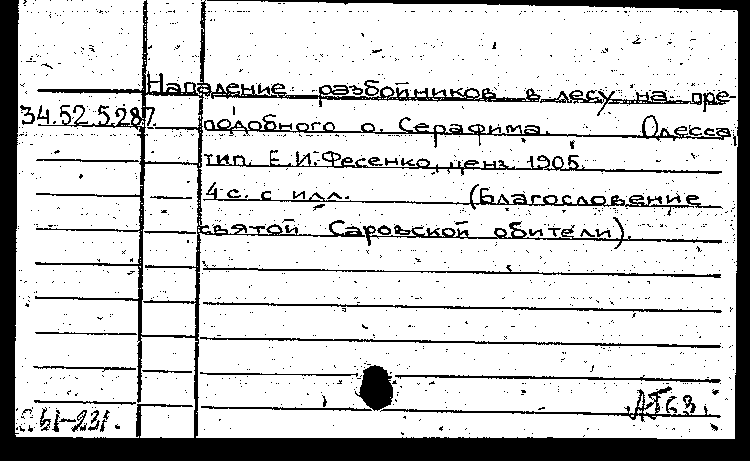 Нападение разбойников в лесу на пре-
34.52.5.287. подобного о. Серафима. Одесса,
тип. Е.И.Фесенко, ценз. 1905.
4 с. с илл. (Благословение
святой Саровской обители).
61-231.